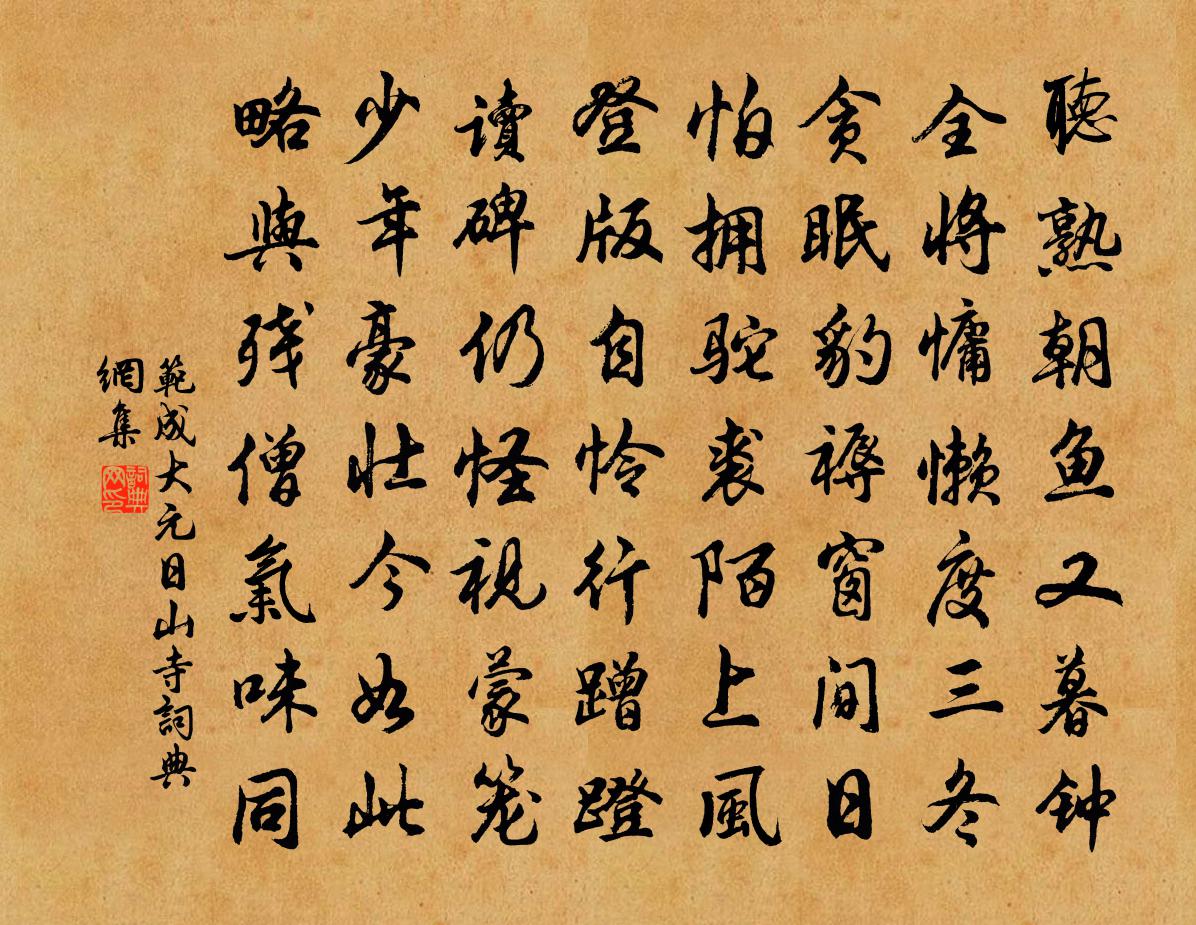 聽熟朝魚又暮钟
全將慵懶度三冬
貪眠豹褥窗间日
怕拥驼裘陌上風
登版自怜行蹭蹬
讀碑仍怪視蒙笼
少年豪壮今如此
略與残僧氣味同
範成大元日山寺詞典
網集
詞典
网印